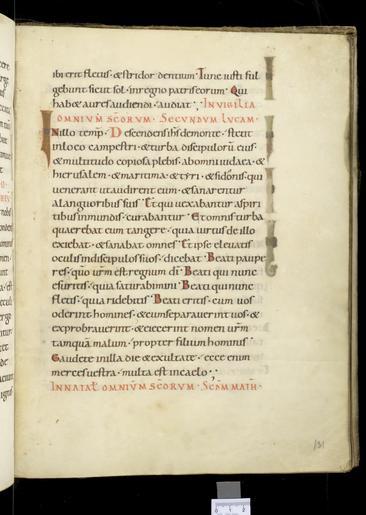 ibi erit fletus · & stridor dentium · Tunc iusti ful
gebunt sicut sol · in regno patris eorum · Qui
hab& aures audiendi · audiat · IN VIGILIA
OMNIUM SCORUM · SECUNDUM LUCAM ·
IN illo temp · Descendens ihs de monte · stetit
in loco campestri · & turba discipulorū eius ·
& multitudo copiosa plebis · ab omni iudaea · &
hierusalem · & maritima · & tyri · & sidonis · qui
venerant ut audirent eum · & sanarentur
a languoribus suis · Et qui vexabantur a spiri
tibus inmundis · curabantur · Et omnis turba
quaerebat eum tangere · quia virtus de illo
exiebat · & sanabat omnes · Et ipse elevatis
oculis in discipulos suos · dicebat · Beati paupe
res · quō vrm est regnum dī · Beati qui nunc
esuritis · quia saturabimini · Beati qui nunc
fletis · quia ridebitis · Beati eritis · cum vos
oderint homines · & cum separaverint vos · &
exprobraverint · & eiecerint nomen vrm
tamquā malum · propter filium hominis
Gaudete in illa die & exultate · ecce enim
merces vestra · multa est in caelo ·
IN NATAL OMNIUM SCORUM · SCDM MATH ·
131